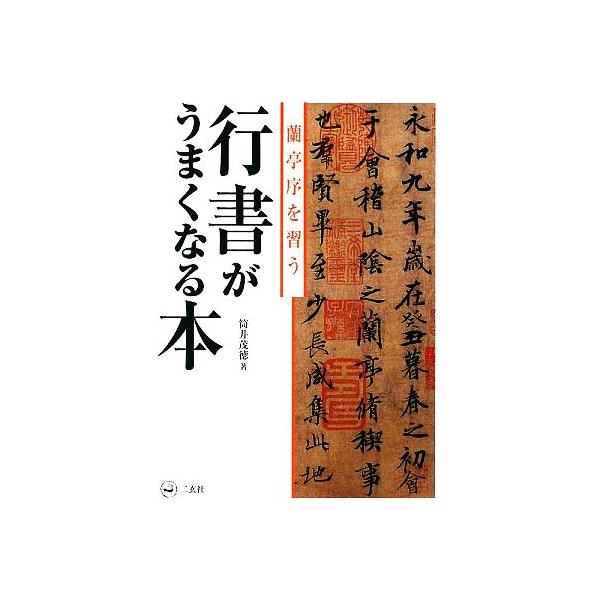 永和九年歲在癸丑暮春之初會
于會稽山陰之蘭亭脩禊事
也羣賢畢至少長咸集此地
蘭亭序を習う
行書が
うまくなる本
筒井茂徳 著
二玄社